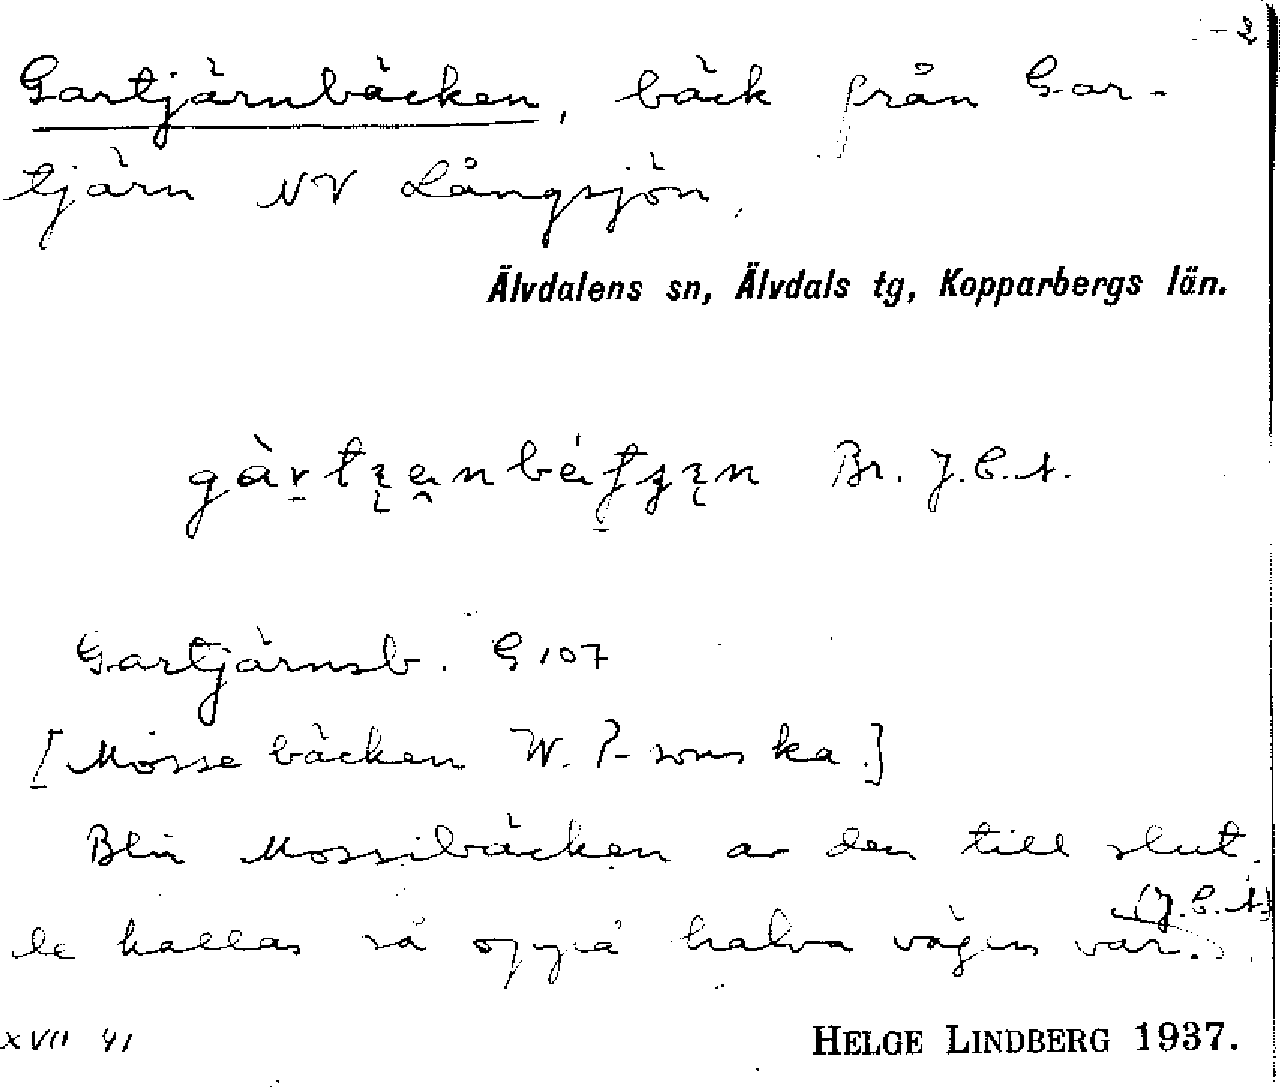 - 2
Gartjärnbäcken, bäck från Gar-
tjärn NV Långsjön.
Älvdalens sn, Älvdals tg, Kopparbergs län.
Br. J.E.A.
Gartjärnsb. G 107
[Mosse bäcken W. P-sons ka.]
Blir Mossibäcken av den till slut.
(J.E.A)
de kallas så oppå halva vägen var.
XVII 41
HELGE LINDBERG 1937.